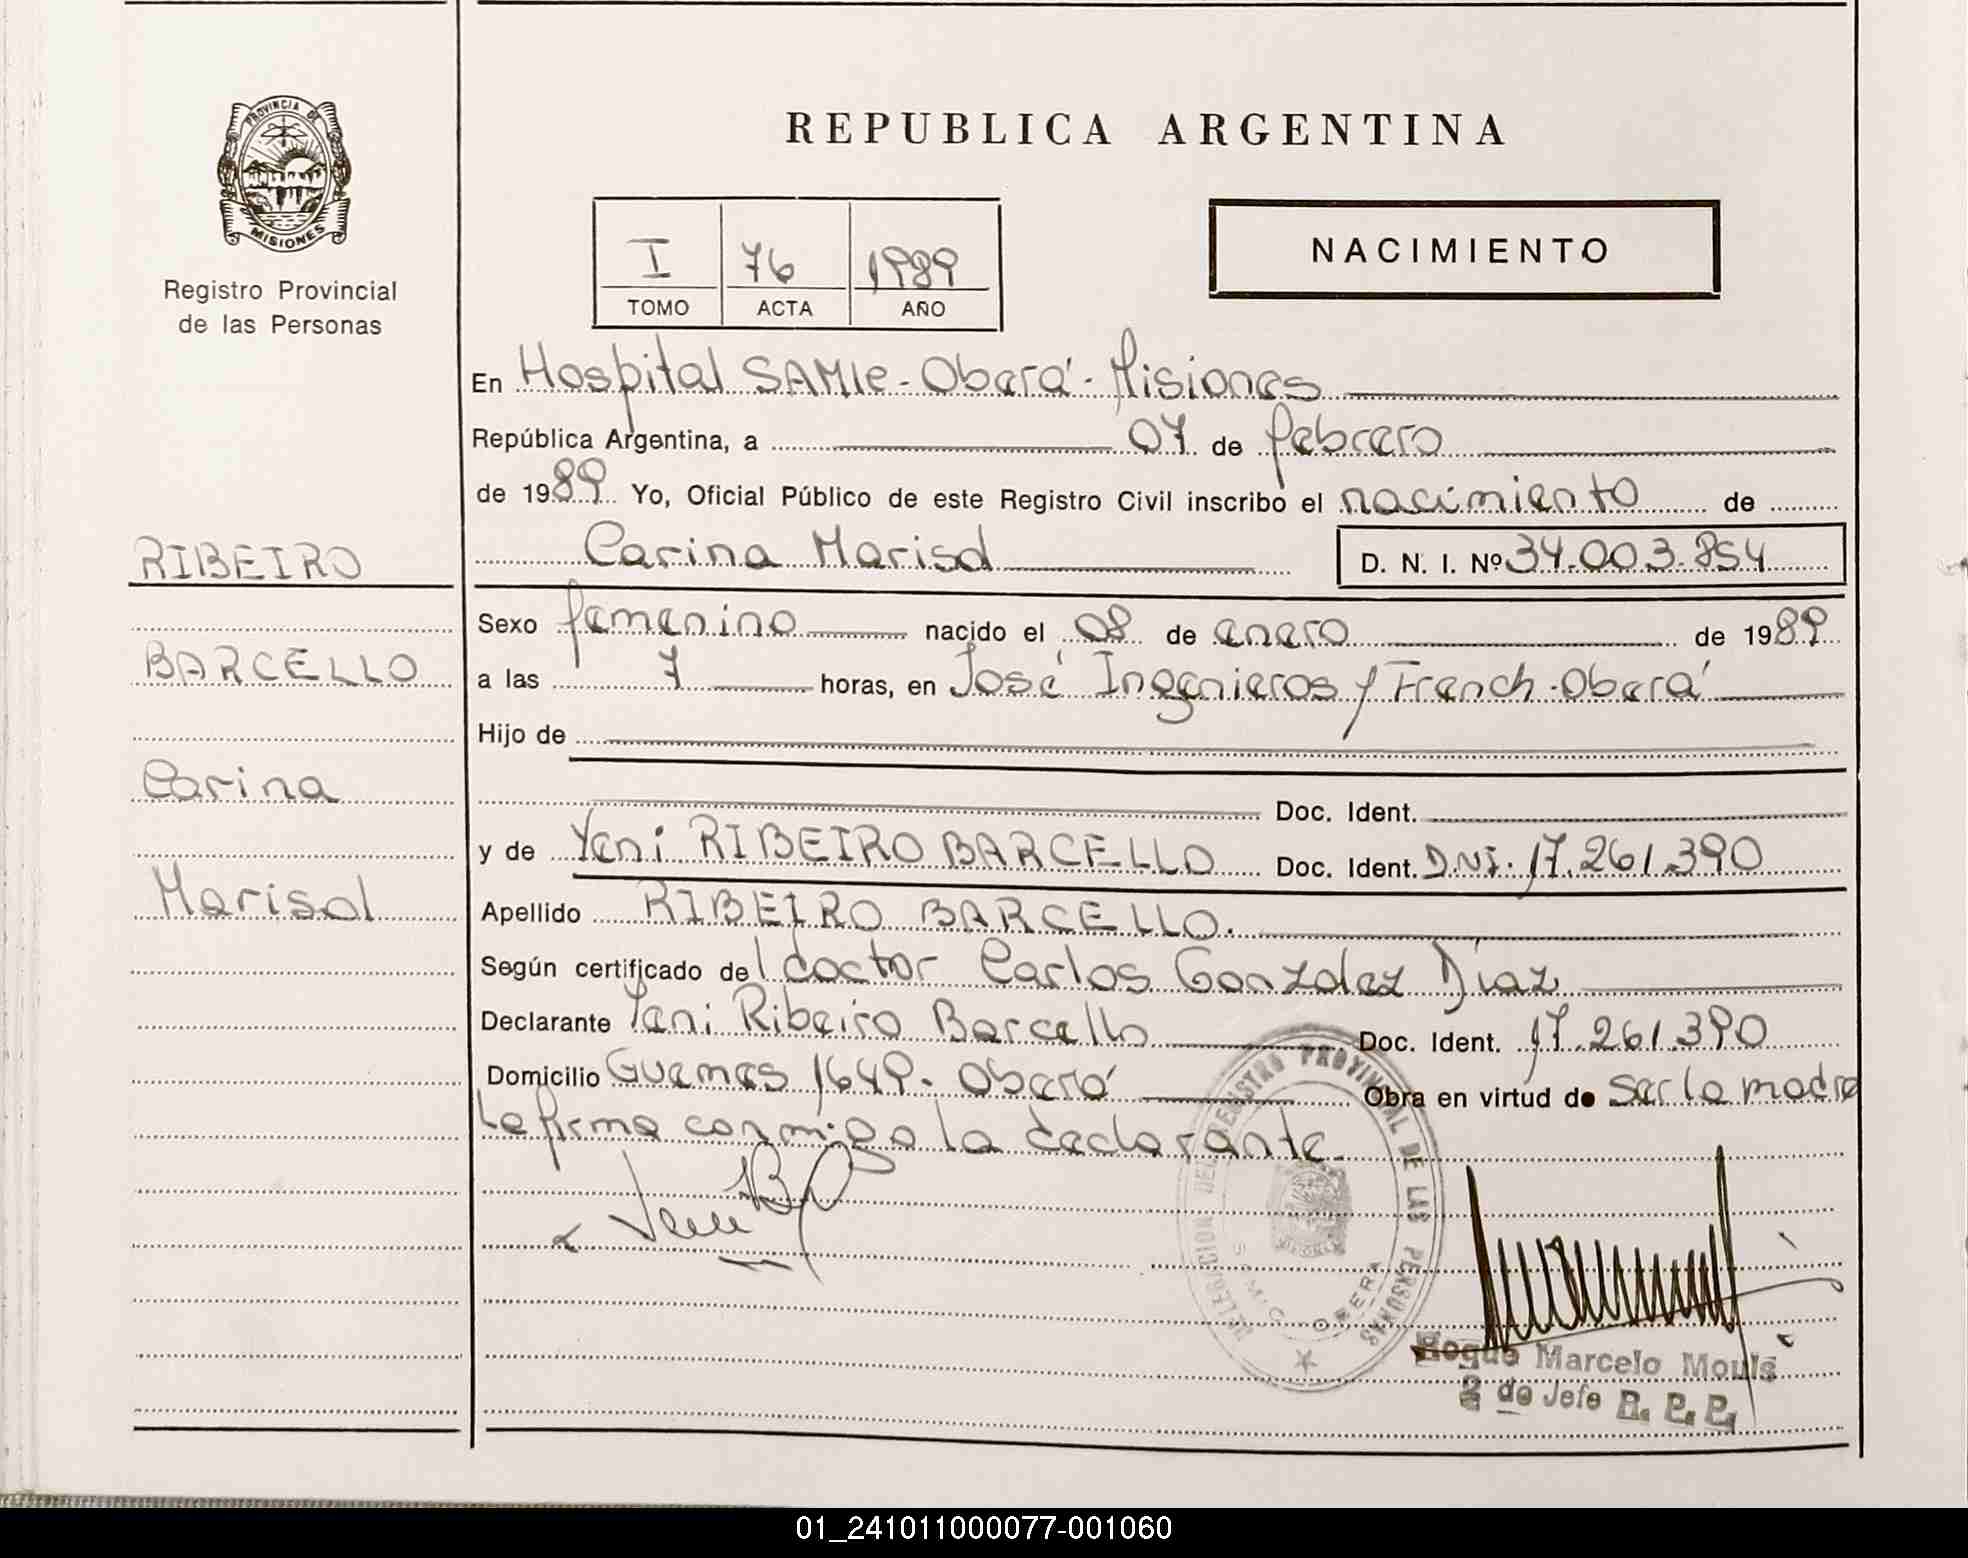 PROVINCIA DE
MISIONES
Registro Provincial
de las Personas
RIBEIRO
BARCELLO
Carina
Marisol
REPUBLICA ARGENTINA
I 76 1989
TOMO ACTA AÑO
NACIMIENTO
En Hospital SAMIC - Oberá - Misiones
República Argentina, a 07 de febrero
de 1989 Yo, Oficial Público de este Registro Civil inscribo el nacimiento de
Carina Marisol D. N. I. Nº 34.003.854
Sexo femenino nacido el 08 de enero de 1989
a las 7 horas, en José Ingenieros y French - Oberá
Hijo de
Doc. Ident.
y de Yeni RIBEIRO BARCELLO Doc. Ident. D.N.I. 17.261.390
Apellido RIBEIRO BARCELLO.
Según certificado del doctor Carlos Gonzalez Díaz
Declarante Yeni Ribeiro Barcello Doc. Ident. 17.261.390
Domicilio Guemes 1649 - Oberá Obra en virtud de ser la madre
Le firma conmigo la declarante.
DELEGACION DEL REGISTRO PROVINCIAL DE LAS PERSONAS
S.A.M.I.C. OBERA
Roque Marcelo Mouls
2 do Jefe R. P. P.
01_241011000077-001060